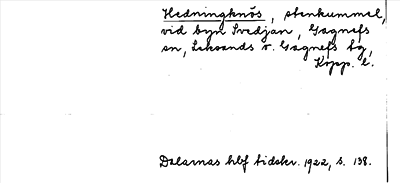 Hedningknös, stenkummel,
vid byn Svedjan, Gagnefs
sn, Leksands o. Gagnefs tg,
Kopp. l.
Dalarnas hbf tidskr. 1922, s. 138.